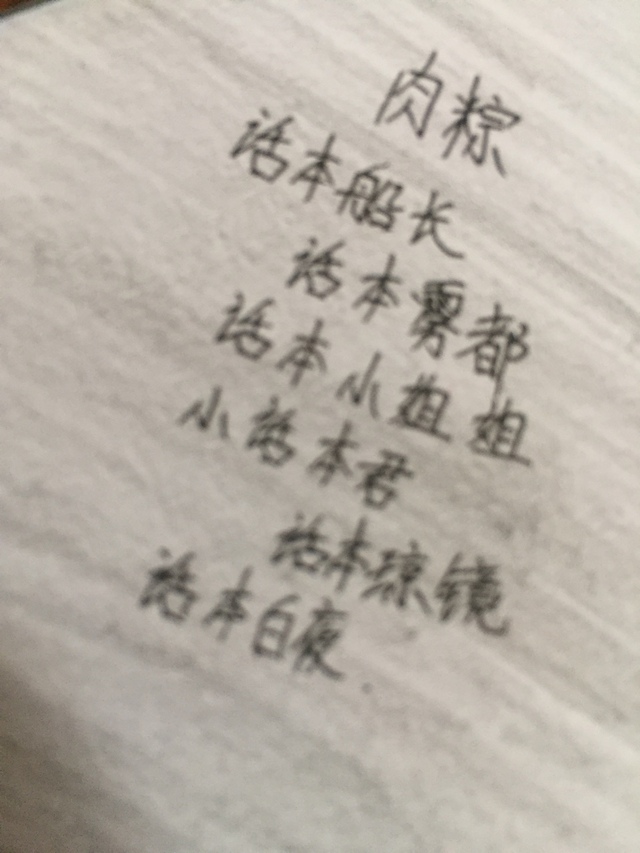 肉粽
话本船长
话本雾都
话本小姐姐
小话本君
话本琼镜
话本白夜